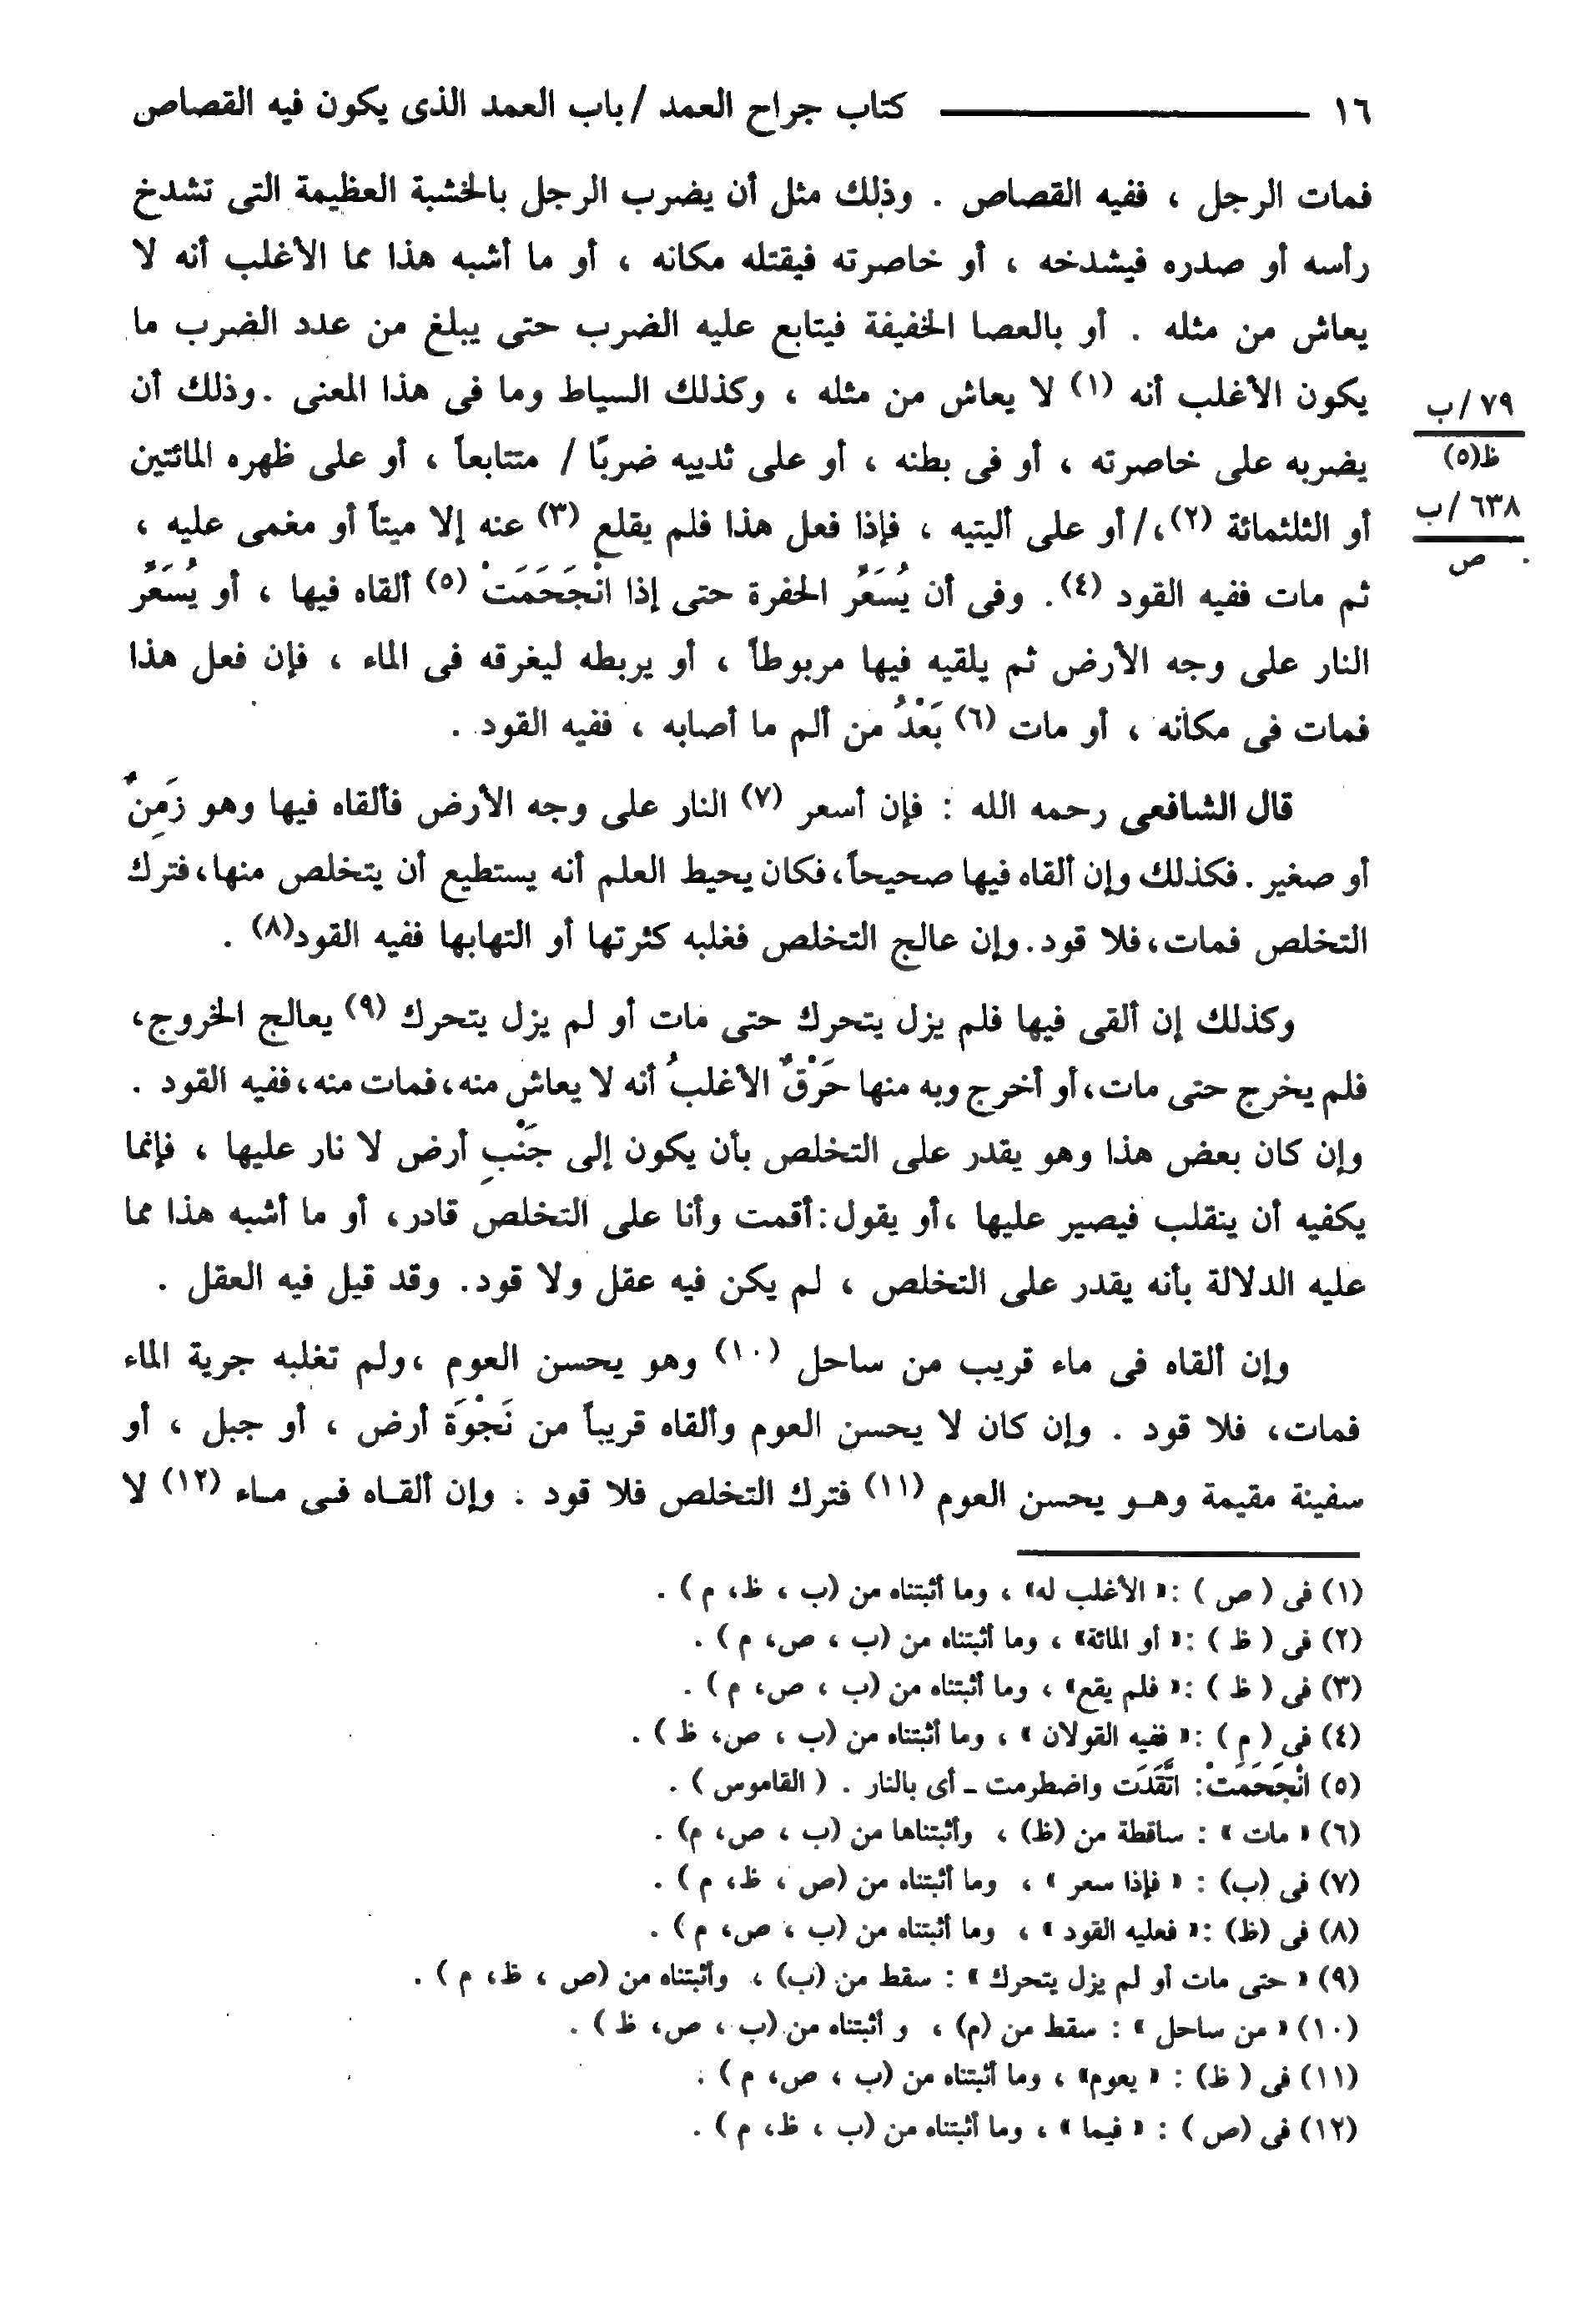 ١٦ كتاب جراح العمد / باب العمد الذى يكون فيه القصاص
فمات الرجل ، ففيه القصاص . وذلك مثل أن يضرب الرجل بالخشبة العظيمة التى تشدخ
رأسه أو صدره فيشدخه ، أو خاصرته فيقتله مكانه ، أو ما أشبه هذا مما الأغلب أنه لا
يعاش من مثله . أو بالعصا الخفيفة فيتابع عليه الضرب حتى يبلغ من عدد الضرب ما
يكون الأغلب أنه (١) لا يعاش من مثله ، وكذلك السياط وما فى هذا المعنى . وذلك أن
٧٩/ب
ظ(٥)
يضربه على خاصرته ، أو فى بطنه ، أو على ثدييه ضربًا / متتابعاً ، أو على ظهره المائتين
٦٣٨/ب
ص
أو الثلثمائة (٢)،/ أو على أليتيه ، فإذا فعل هذا فلم يقلع (٣) عنه إلا ميتاً أو مغمى عليه ،
ثم مات ففيه القود (٤). وفى أن يُسَعِّر الحفرة حتى إذا انْجَحَمَتْ (٥) ألقاه فيها ، أو يُسَعِّر
النار على وجه الأرض ثم يلقيه فيها مربوطاً ، أو يربطه ليغرقه فى الماء ، فإن فعل هذا
فمات فى مكانه ، أو مات (٦) بَعْدُ من ألم ما أصابه ، ففيه القود .
قال الشافعى رحمه الله : فإن أسعر (٧) النار على وجه الأرض فألقاه فيها وهو زَمِنٌ
أو صغير . فكذلك وإن ألقاه فيها صحيحاً، فكان يحيط العلم أنه يستطيع أن يتخلص منها، فترك
التخلص فمات، فلا قود. وإن عالج التخلص فغلبه كثرتها أو التهابها ففيه القود(٨) .
وكذلك إن ألقى فيها فلم يزل يتحرك حتى مات أو لم يزل يتحرك (٩) يعالج الخروج،
فلم يخرج حتى مات، أو أخرج وبه منها حَرْقٌ الأغلبُ أنه لا يعاش منه، فمات منه، ففيه القود .
وإن كان بعض هذا وهو يقدر على التخلص بأن يكون إلى جَنْبِ أرض لا نار عليها ، فإنما
يكفيه أن ينقلب فيصير عليها ، أو يقول: أقمت وأنا على التخلص قادر، أو ما أشبه هذا مما
عليه الدلالة بأنه يقدر على التخلص ، لم يكن فيه عقل ولا قود. وقد قيل فيه العقل .
وإن ألقاه فى ماء قريب من ساحل (١٠) وهو يحسن العوم ، ولم تغلبه جرية الماء
فمات، فلا قود . وإن كان لا يحسن العوم وألقاه قريباً من نَجْوَة أرض ، أو جبل ، أو
سفينة مقيمة وهو يحسن العوم (١١) فترك التخلص فلا قود . وإن ألقاه فى ماء (١٢) لا
(١) فى ( ص ) : « الأغلب له» ، وما أثبتناه من (ب ، ظ، م ) .
(٢) فى ( ظ ) : « أو المائة» ، وما أثبتناه من (ب ، ص، م ) .
(٣) فى ( ظ ) : « فلم يقع» ، وما أثبتناه من (ب ، ص، م ) .
(٤) فى ( م ) : « ففيه القولان » ، وما أثبتناه من (ب ، ص، ظ ) .
(٥) انْجَحَمَتْ: اتَّقَدَت واضطرمت ـ أى بالنار . ( القاموس ) .
(٦) « مات » : ساقطة من (ظ) ، وأثبتناها من (ب ، ص، م) .
(٧) فى (ب) : « فإذا سعر » ، وما أثبتناه من (ص ، ظ، م ) .
(٨) فى (ظ) : « فعليه القود » ، وما أثبتناه من (ب ، ص، م ) .
(٩) « حتى مات أو لم يزل يتحرك » : سقط من (ب) ، وأثبتناه من (ص ، ظ، م ) .
(١٠) « من ساحل » : سقط من (م) ، و أثبتناه من (ب ، ص، ظ ) .
(١١) فى ( ظ) : « يعوم» ، وما أثبتناه من (ب ، ص، م ) .
(١٢) فى (ص ) : « فيما » ، وما أثبتناه من (ب ، ظ، م ) .